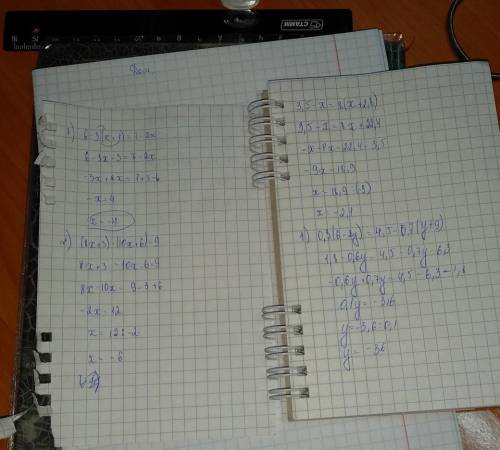 СТАММ
1) 6-3(x+1)=7-2x
6-3x-3=7-2x
-3x+2x=7+3-6
-x=4
x=-4
2) (8x+3)-(10x+6)=9
8x+3-10x-6=9
8x-10x=9-3+6
-2x=12
x=12:-2
x=-6
3,5-x=8(x+2,8)
3,5-x=8x+22,4
-x-8x=22,4-3,5
-9x=18,9
x=18,9:(-9)
x=-2,1
0,3(6-2y)=4,5-0,7(y+9)
1,8-0,6y=4,5-0,7y-6,3
-0,6y+0,7y=4,5-6,3-1,8
0,1y=-3,6
y=-3,6:0,1
y=-36